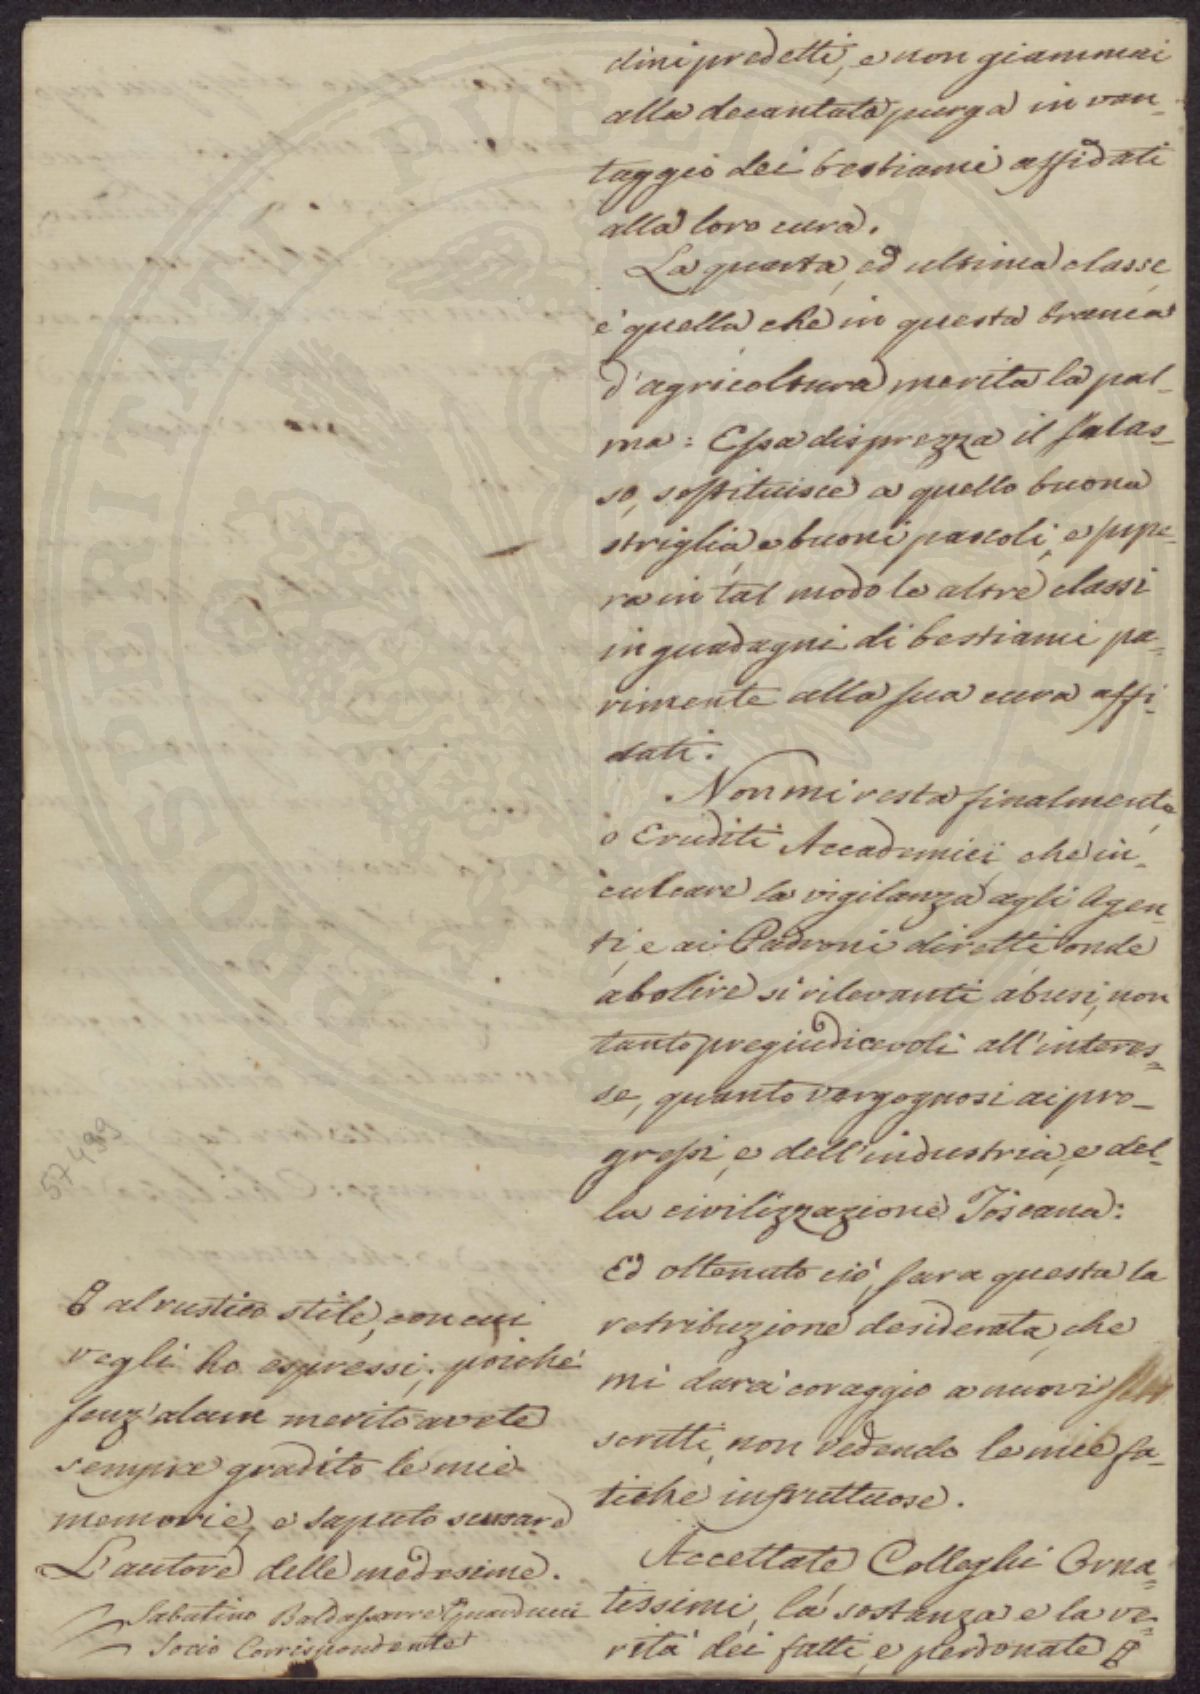 dini predetti, e non giammai
alla decantata purga in van-
taggio dei bestiami affidati
alla loro cura.
La quarta, ed ultima classe
è quella che in questa branca
d'agricoltura merita la pal-
ma: Essa disprezza il salas-
so, sostituisce a quello buona
striglia, e buoni pascoli, e supe-
ra in tal modo le altre classi
in guadagni di bestiami pa-
rimente alla sua cura affi-
dati.
Non mi resta finalmente
o Eruditi Accademici che in-
culcare la vigilanza agli Agen-
ti, e ai Padroni diretti onde
abolire sì rilevanti abusi, non
tanto pregiudicevoli all'interes-
se, quanto vergognosi ai pro-
gressi, e dell'industria, e del-
la civilizzazione Toscana:
Ed ottenuto ciò, sara questa la
retribuzione desiderata, che
mi darà coraggio a nuovi
scritti, non vedendo le mie fa-
tiche infruttuose.
Accettate Colleghi Orna-
tissimi, la sostanza e la ve-
rità dei fatti, e perdonate
al rustico stile, con cui
vegli ho espressi; poichè
senz'alcun merito avete
sempre gradito le mie
memorie, e saputo scusare
L'autore delle medesime.
Sabatino Baldassarre Guarducci
Socio Corrispondente
57499
PROSPERITATI PVBLICAE